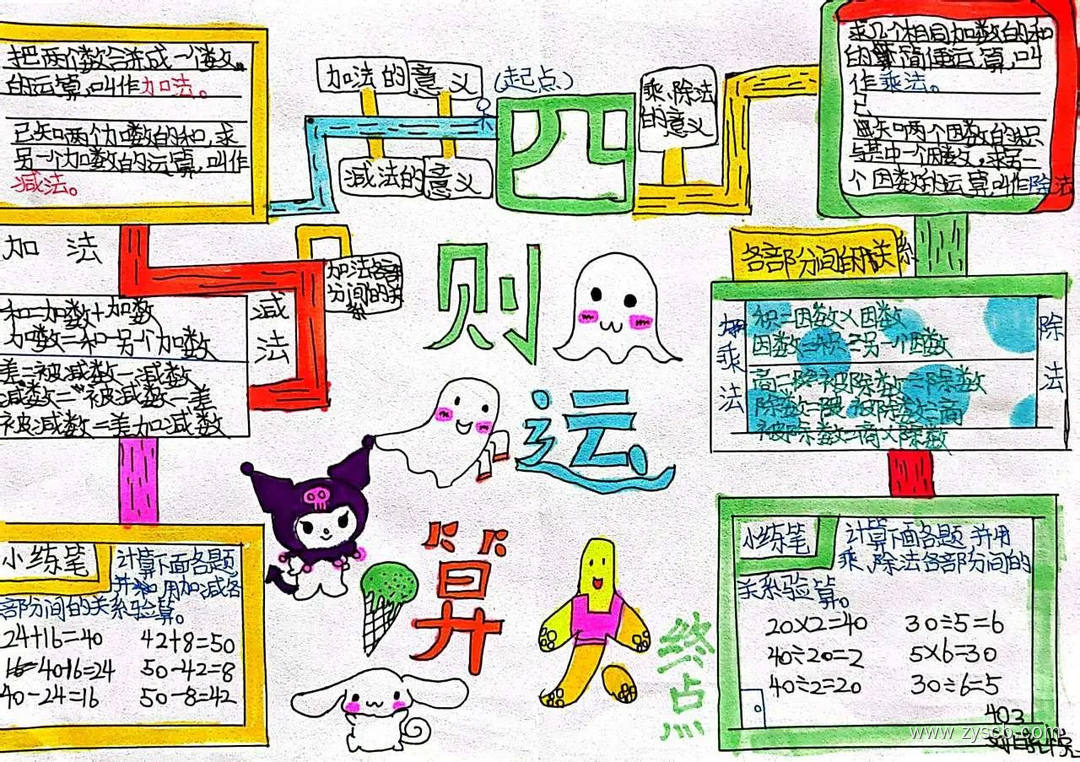 把两个数合并成一个数
的运算,叫作加法。
已知两个加数的和,求
另一个加数的运算,叫作
减法。
加法的意义
(起点)
减法的意义
四
乘、除法
的意义
求几个相同加数的和
的简便运算,叫
作乘法。
已知两个因数的积
与其中一个因数,求另一
个因数的运算,叫作除法
加法
和=加数+加数
加数=和-另一个加数
减法
差=被减数-减数
减数=被减数-差
被减数=差加减数
加法各部
分间的关
系
则
各部分间的关系
乘法
积=因数×因数
因数=积÷另一个因数
除法
商=被除数÷除数
除数=被除数÷商
被除数=商×除数
运
算
小练笔
计算下面各题
并用加减各
部分间的关系验算。
24+16=40
40-16=24
40-24=16
42+8=50
50-42=8
50-8=42
终点
小练笔
计算下面各题并用
乘、除法各部分间的
关系验算。
20×2=40
40÷20=2
40÷2=20
30÷5=6
5×6=30
30÷6=5
403
www.zyscb.com